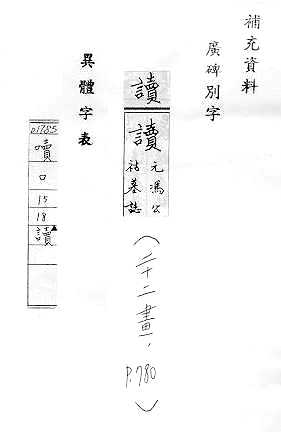 補充資料
廣碑別字
讀
讀
元馮公
祜墓誌
(二十二畫，P.780)
異體字表
p1785
嚽
口
15
18
讀